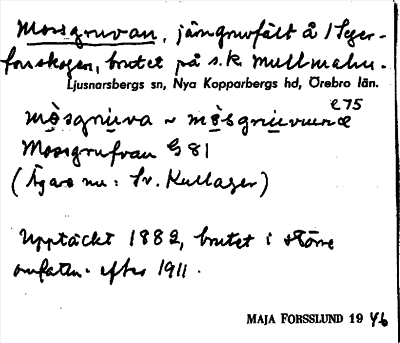 Mossgruvan, järngruvfält å
forsskogen, brutet på s.k. mullmalm.
Ljusnarsbergs sn, Nya Kopparbergs hd, Örebro län.
E75
mòsgrùva ~
Mossgrufvan G 81
(Ägare nu: Sv. Kullager)
Upptäckt 1882, brutet i större
omfattn. efter 1911.
MAJA FORSSLUND 1946